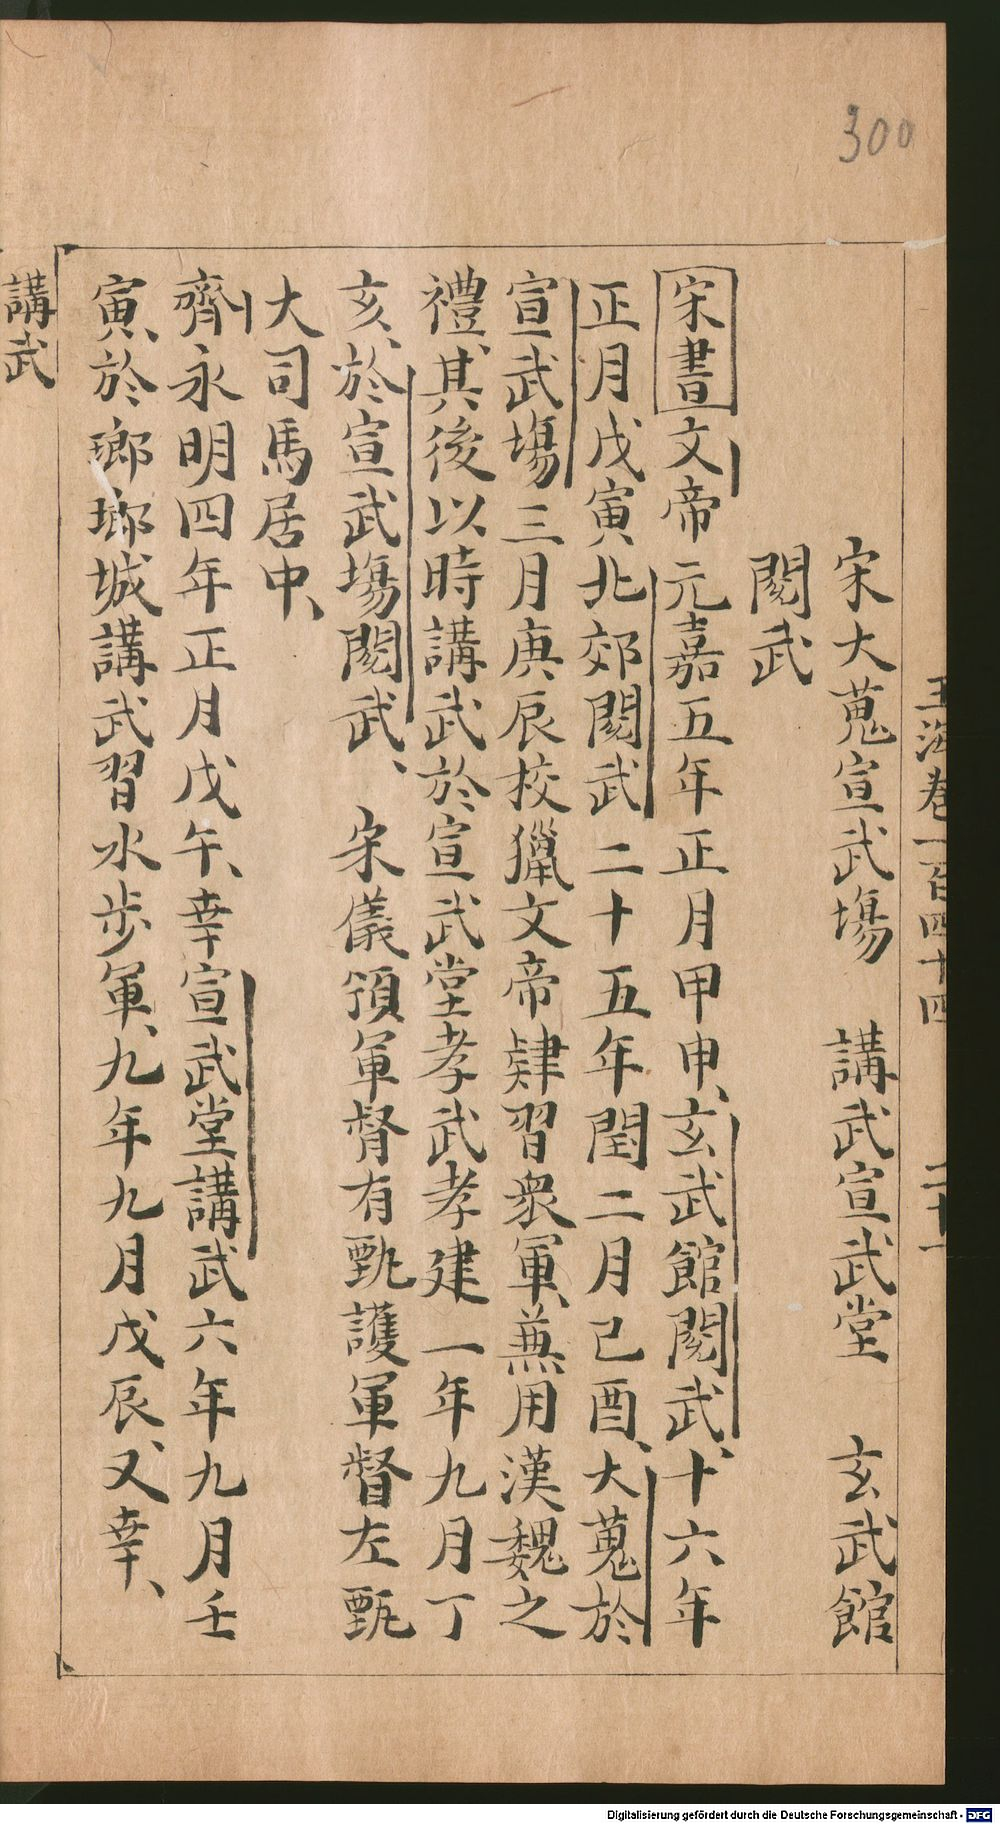 300
玉海卷一百四十四 二十一
宋大蒐宣武塲 講武宣武堂 玄武館
閱武
宋書文帝元嘉五年正月甲申、玄武館閱武、十六年
正月戊寅北郊閱武二十五年閏二月己酉、大蒐於
宣武塲三月庚辰校獵文帝肄習衆軍、兼用漢魏之
禮、其後以時講武於宣武堂孝武孝建一年九月丁
亥、於宣武塲閱武、 宋儀領軍督有甄護軍督左甄
大司馬居中、
齊永明四年正月戊午、幸宣武堂講武六年九月壬
寅、於瑯琊城講武習水步軍、九年九月戊辰、又幸、
講武
Digitalisierung gefördert durch die Deutsche Forschungsgemeinschaft - DFG